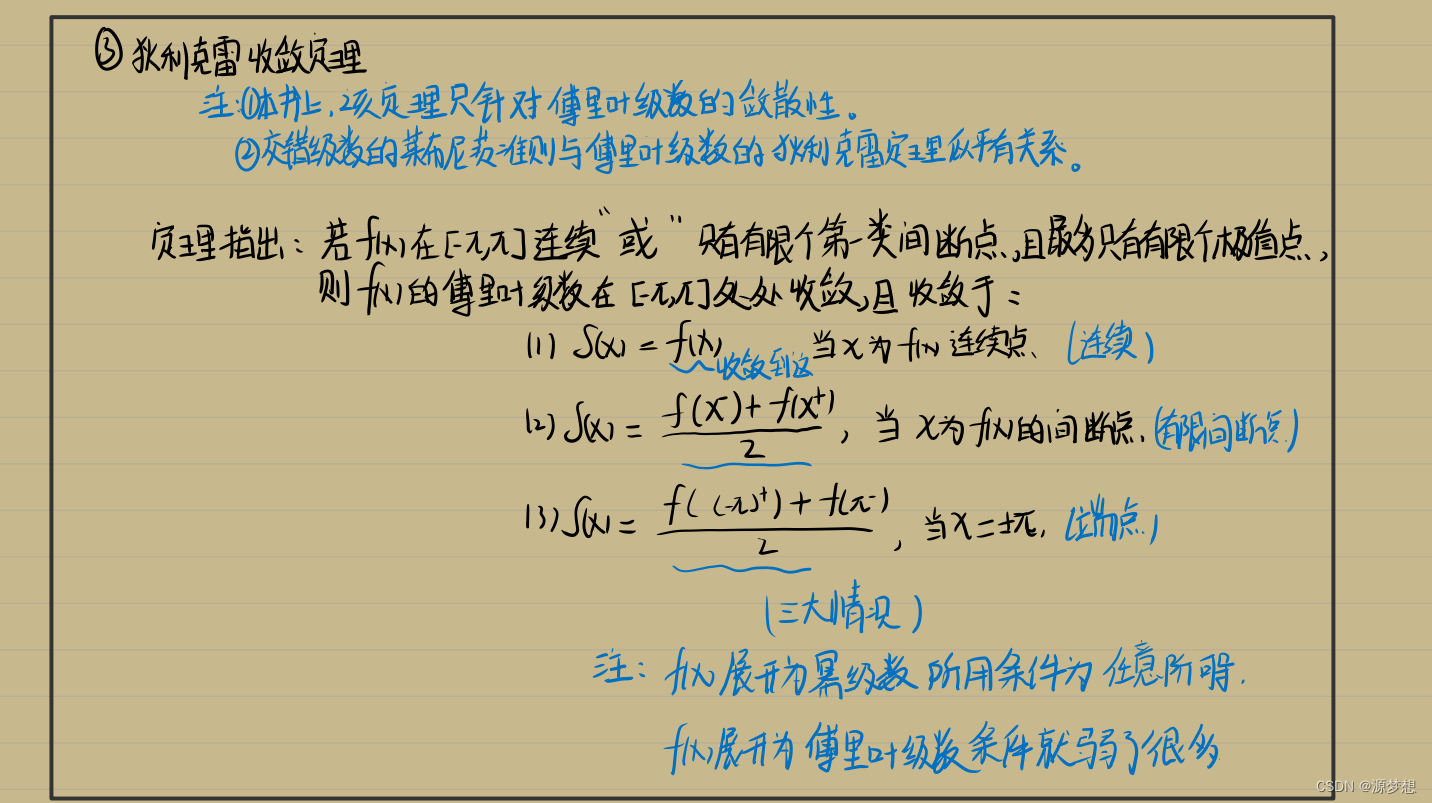 ③狄利克雷收敛定理
注:①本书上,该定理只针对傅里叶级数的敛散性。
②交错级数的莱布尼茨准则与傅里叶级数的狄利克雷定理似乎有关系。
定理指出:若f(x)在[-π,π]连续“或”只有有限个第一类间断点,且最多只有有限个极值点,
则f(x)的傅里叶级数在[-π,π]处处收敛,且收敛于:
(1) S(x) = f(x) 当x为f(x)连续点、(连续)
收敛到这
(2) S(x) = \frac{f(x^-)+f(x^+)}{2}, 当x为f(x)的间断点、(有限间断点)
(3) S(x) = \frac{f((-π)^+)+f(π^-)}{2}, 当x=±π, (端点)
(三大情况)
注: f(x)展开为幂级数所用条件为任意阶可导.
f(x)展开为傅里叶级数条件就弱了很多
CSDN @源梦想